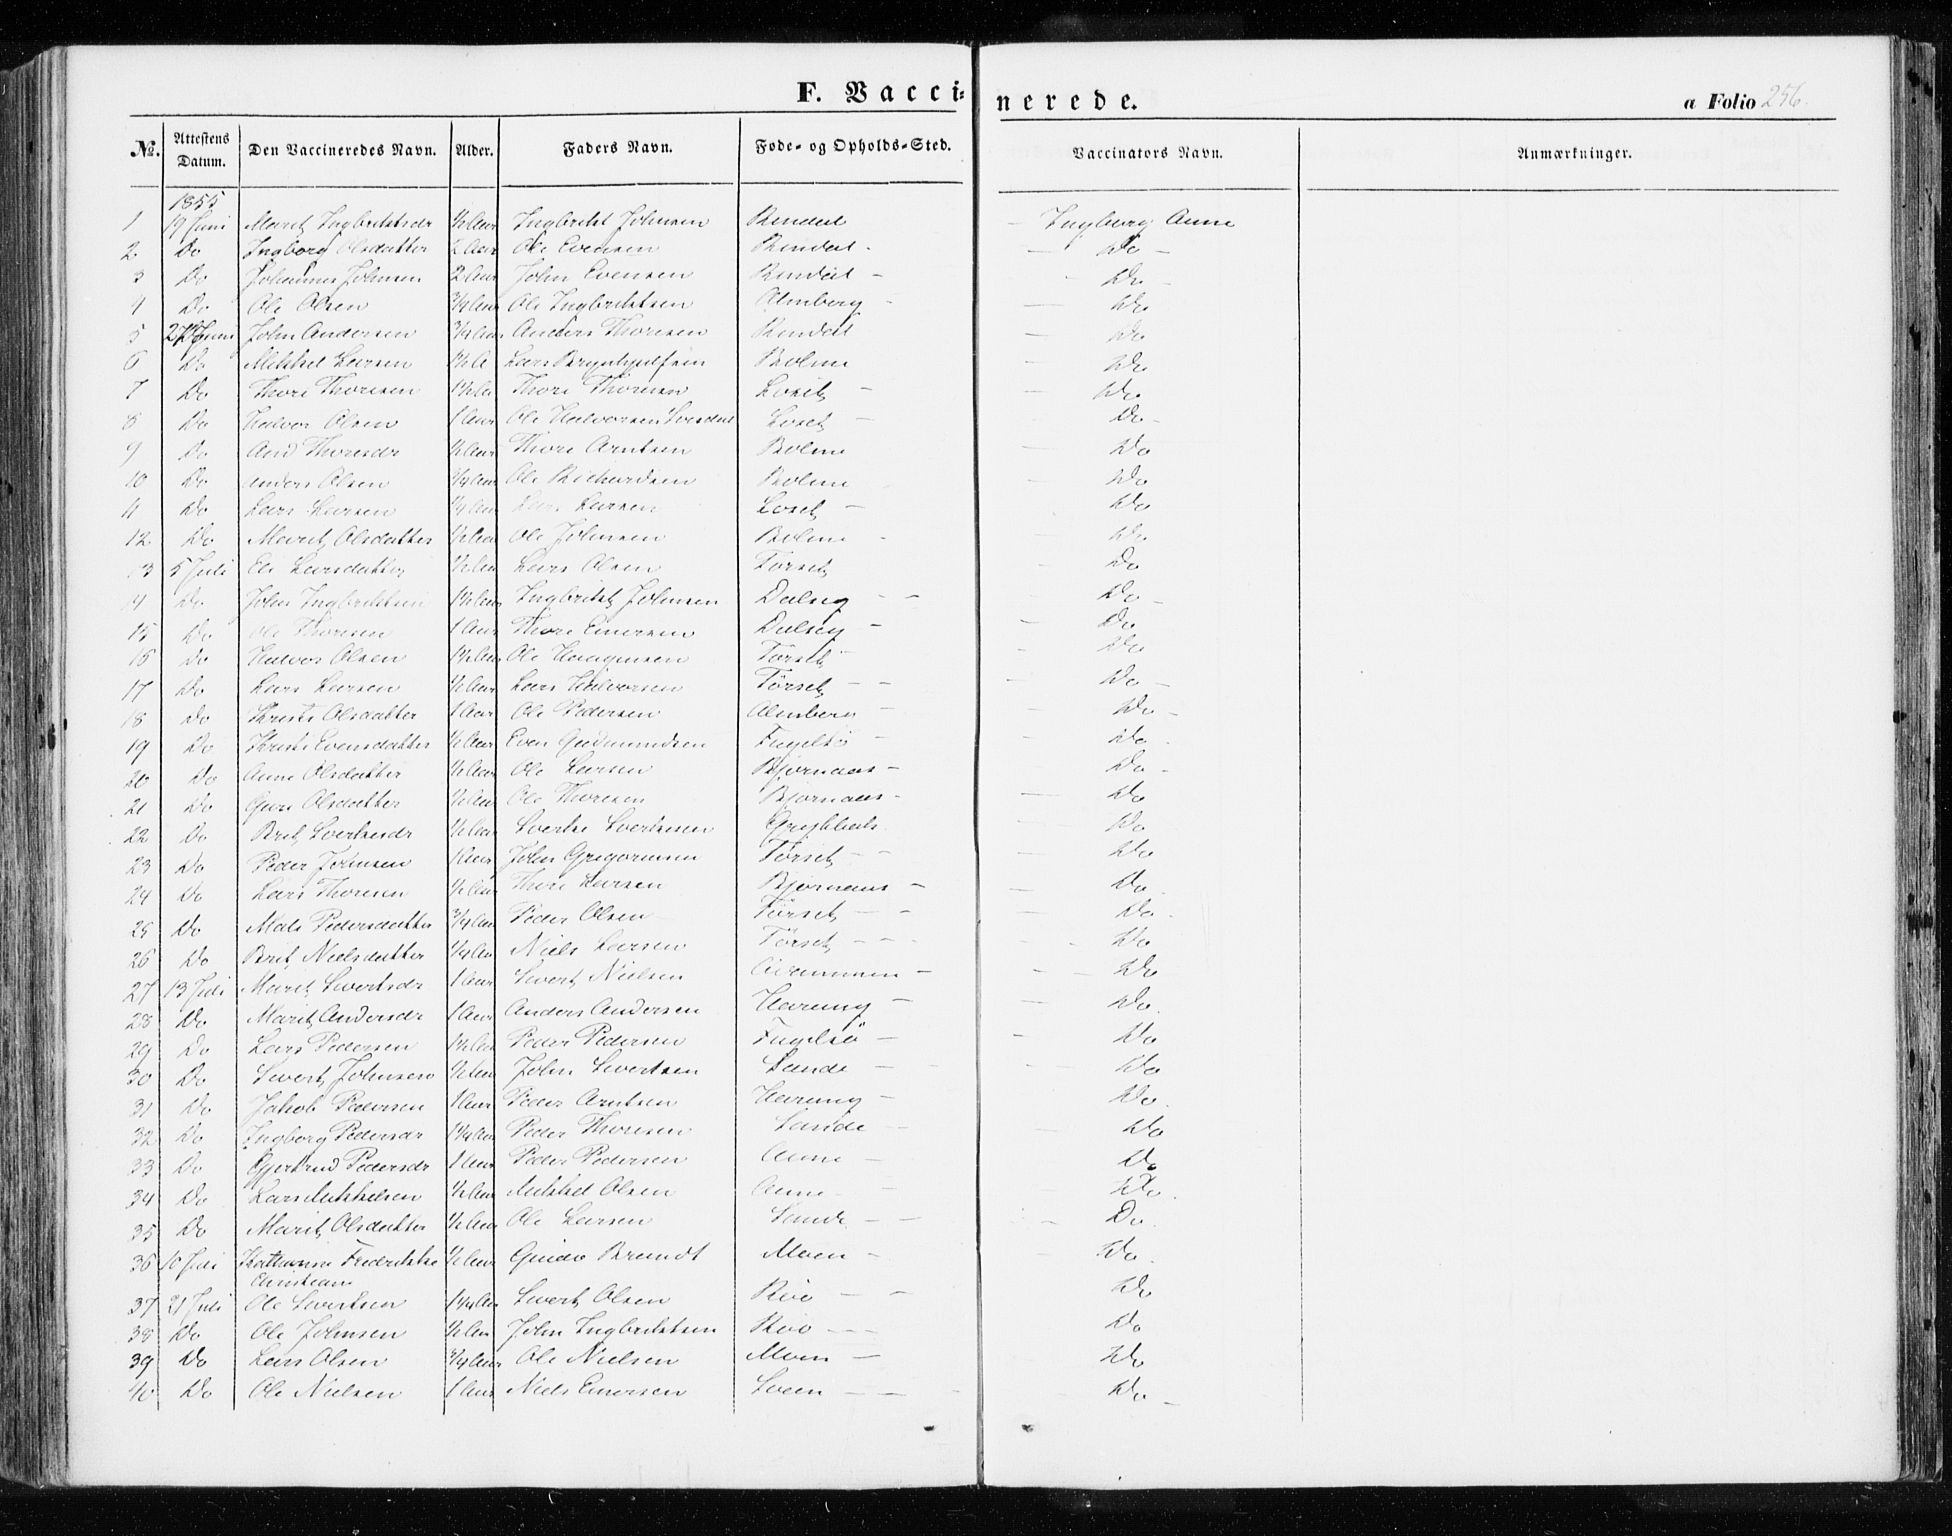 F. Vaccinerede. a Folio 256.
No. Attestens Datum. Den Vaccineredes Navn. Alder. Faders Navn. Føde- og Opholds-Sted. Vaccinators Navn. Anmærkninger.
1855
1 19 Juni Marit Ingbriktsdr ½ Aar Ingbrikt Johnsen Rindal - Ingborg Aune
2 Do Ingborg Olsdatter 2 Aar Ole Evensen Rindal - — Do -
3 Do Johannes Johnsen 2 Aar John Evensen Rindal - - Do -
4 Do Ole Olsen ¾ Aar Ole Ingbriktsen Almberg - — Do
5 27 Juni John Andersen ¾ Aar Anders Thoresen Rindal — Do
6 Do Mikkel Larsen 1½ A Lars Brynhyldsen Bolme — Do
7 Do Thore Thoresen 1½ Aa Thore Thoresen Loset — — Do
8 Do Halvor Olsen 1 Aar Ole Halvorsen Loset — — Do -
9 Do Thoresdr ½ Aar Thore Arntsen Bolme — Do
10 Do Anders Olsen ¼ Aar Ole Richardsen Bolme — Do
11 Do Lars Larsen ¼ Aar Lars Larsen Loset — — Do
12 Do Marit Olsdatter ½ Aar Ole Johnsen Bolme - — Do
13 5 Juli Eli Larsdatter ½ Aar Lars Olsen Torset — Do
14 Do John Ingbriktsen 1½ Aar Ingbrikt Johnsen Dalseg - - — Do -
15 Do Ole Thoresen 1 Aar Thore Einersen Dalseg - - Do
16 Do Halvor Olsen 1½ Aar Ole Haagensen Torset - - Do
17 Do Lars Larsen ½ Aar Lars Halvorsen Törset - - - Do -
18 Do Kristi Olsdatter 1 Aar Ole Pedersen Almberg - — Do -
19 Do Kristi Evensdatter ½ Aar Even Gudmundsen Fugelsö - — Do
20 Do Anne Olsdatter ½ Aar Ole Larsen Bjørnaas - — Do -
21 Do Guri Olsdatter ½ Aar Ole Thoresen Bjørnaas - — Do
22 Do Brit Sivertsdr ½ Aar Sivert Sivertsen — Do
23 Do Peder Johnsen 1 Aar John Gregoriusen Törset - - — Do
24 Do Lars Thoresen ½ Aar Thore Larsen Bjørnaas - — Do
25 Do Mali Pedersdatter ¾ Aar Peder Olsen Törset - - — Do
26 Do Brit Nielsdatter ¼ Aar Niels Larsen Törset - - - - Do
27 13 Juli Marit Sivertsdr 1 Aar Sivert Nielsen - - - Do
28 Do Marit Andersdr 1 Aar Anders Andersen Harang - — Do
29 Do Lars Pedersen 1½ Aar Peder Pedersen Fugelsö - - Do
30 Do Sivert Johnsen ½ Aar John Sivertsen Lande - - - Do
31 Do Jakob Pedersen 1 Aar Peder Arntsen Harang - — Do
32 Do Ingborg Pedersdr 1¼ Aar Peder Thoresen Lande - — Do
33 Do Gjertrud Pedersdr 1 Aar Peder Pedersen Aune - — Do
34 Do Lars Mikkelsen ½ Aar Mikkel Olsen Aune - — Do
35 Do Marit Olsdatter ½ Aar Ole Larsen Lande - - - Do
36 10 Juli Kathinna Fredrikke ½ Aar Guido Brandt Moen - — Do
Christiane
37 21 Juli Ole Sivertsen 1¼ Aar Sivert Olsen Roo - - — Do
38 Do Ole Johnsen ½ Aar John Ingbriktsen Roo - - - — Do
39 Do Lars Olsen ¾ Aar Ole Nielsen Moen - — Do
40 Do Ole Nielsen 1 Aar Niels Einersen Loeen - - - Do -